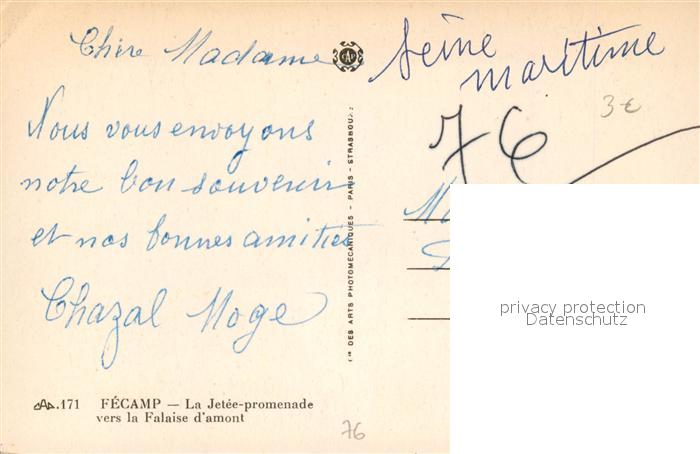 Chère Madame
Nous vous envoyons
notre bon souvenir
et nos bonnes amitiés
Chazal Moge
CAP
Seine
maritime
76
3 €
M
Cie DES ARTS PHOTOMECANIQUES - PARIS - STRASBOURG
privacy protection
Datenschutz
CAP. 171 FÉCAMP — La Jetée-promenade
vers la Falaise d'amont
76